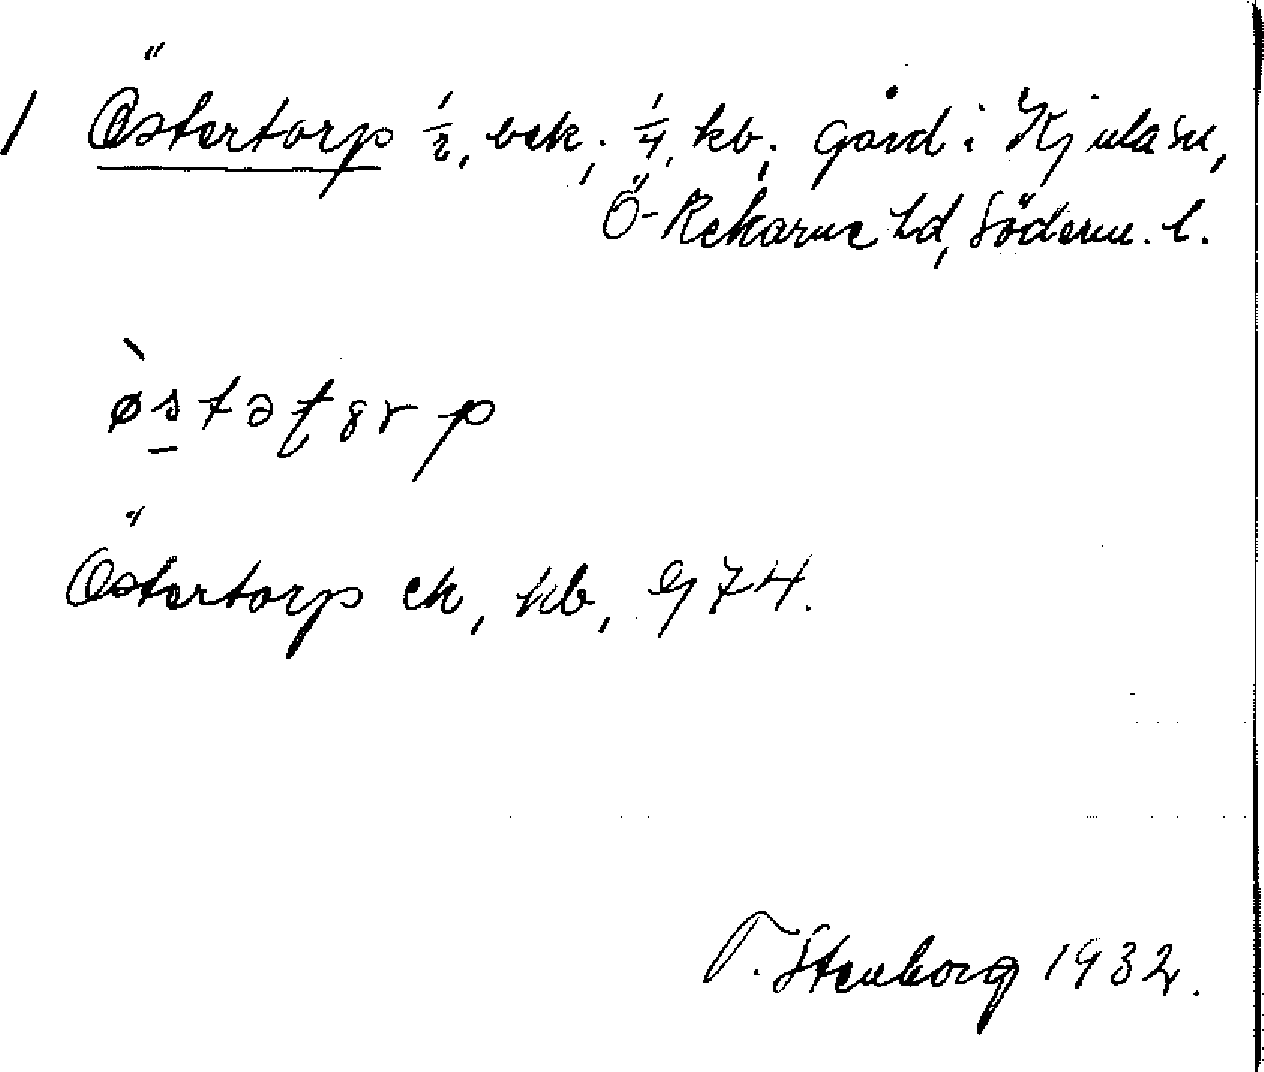 1 Östertorp 1/2, bek; 1/4, kb; gård i Kjula sn,
Ö-Rekarne hd, Söderm. l.
òstətərp
Östertorp ek, kb, Gj 74.
T. Stenborg 1932.